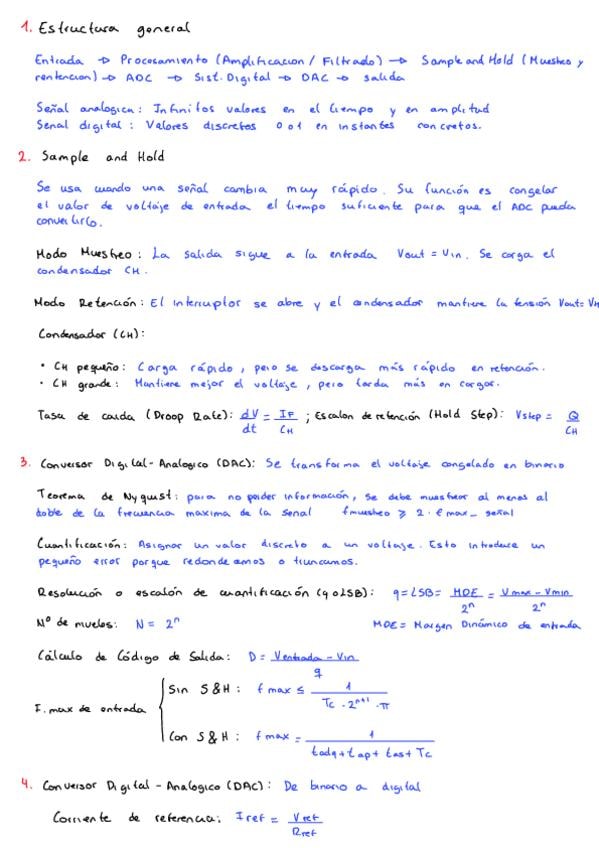 1. Estructura general
Entrada → Procesamiento (Amplificacion / Filtrado) → Sample and Hold (Muestreo y
rentencion) → ADC → Sist. Digital → DAC → salida
Señal analogica: Infinitos valores en el tiempo y en amplitud
Senal digital: Valores discretos 0 o 1 en instantes concretos.
2. Sample and Hold
Se usa cuando una señal cambia muy rápido. Su función es congelar
el valor de voltaje de entrada el tiempo suficiente para que el ADC pueda
convertirlo.
Modo Muestreo: La salida sigue a la entrada Vout = Vin. Se carga el
condensador CH.
Modo Retención: El interruptor se abre y el condensador mantiene la tensión Vout= VH
Condensador (CH):
• CH pequeño: Carga rápido, pero se descarga más rápido en retención.
• CH grande: Mantiene mejor el voltaje, pero tarda más en cargar.
Tasa de caida (Droop Rate): dV/dt = IF/CH ; Escalon de retención (Hold Step): Vstep = Q/CH
3. Conversor Digital-Analogico (DAC): Se transforma el voltaje congelado en binario
Teorema de Nyquist: para no perder información, se debe muestrear al menos al
doble de la frecuencia maxima de la señal fmuestreo ≥ 2 · fmax_señal
Cuantificación: Asignar un valor discreto a un voltaje. Esto introduce un
pequeño error porque redondeamos o truncamos.
Resolución o escalón de cuantificación (q o LSB): q = LSB = MDE/2^n = (Vmax - Vmin)/2^n
Nº de niveles: N = 2^n MDE = Margen Dinámico de entrada
Cálculo de Código de Salida: D = (Ventrada - Vin)/q
f. max de entrada
Sin S&H: f max ≤ 1/(Tc · 2^n+1 · π)
Con S&H: f max = 1/(tadq + tap + tas + Tc)
4. Conversor Digital - Analogico (DAC): De binario a digital
Corriente de referencia: Iref = Vref/Rref